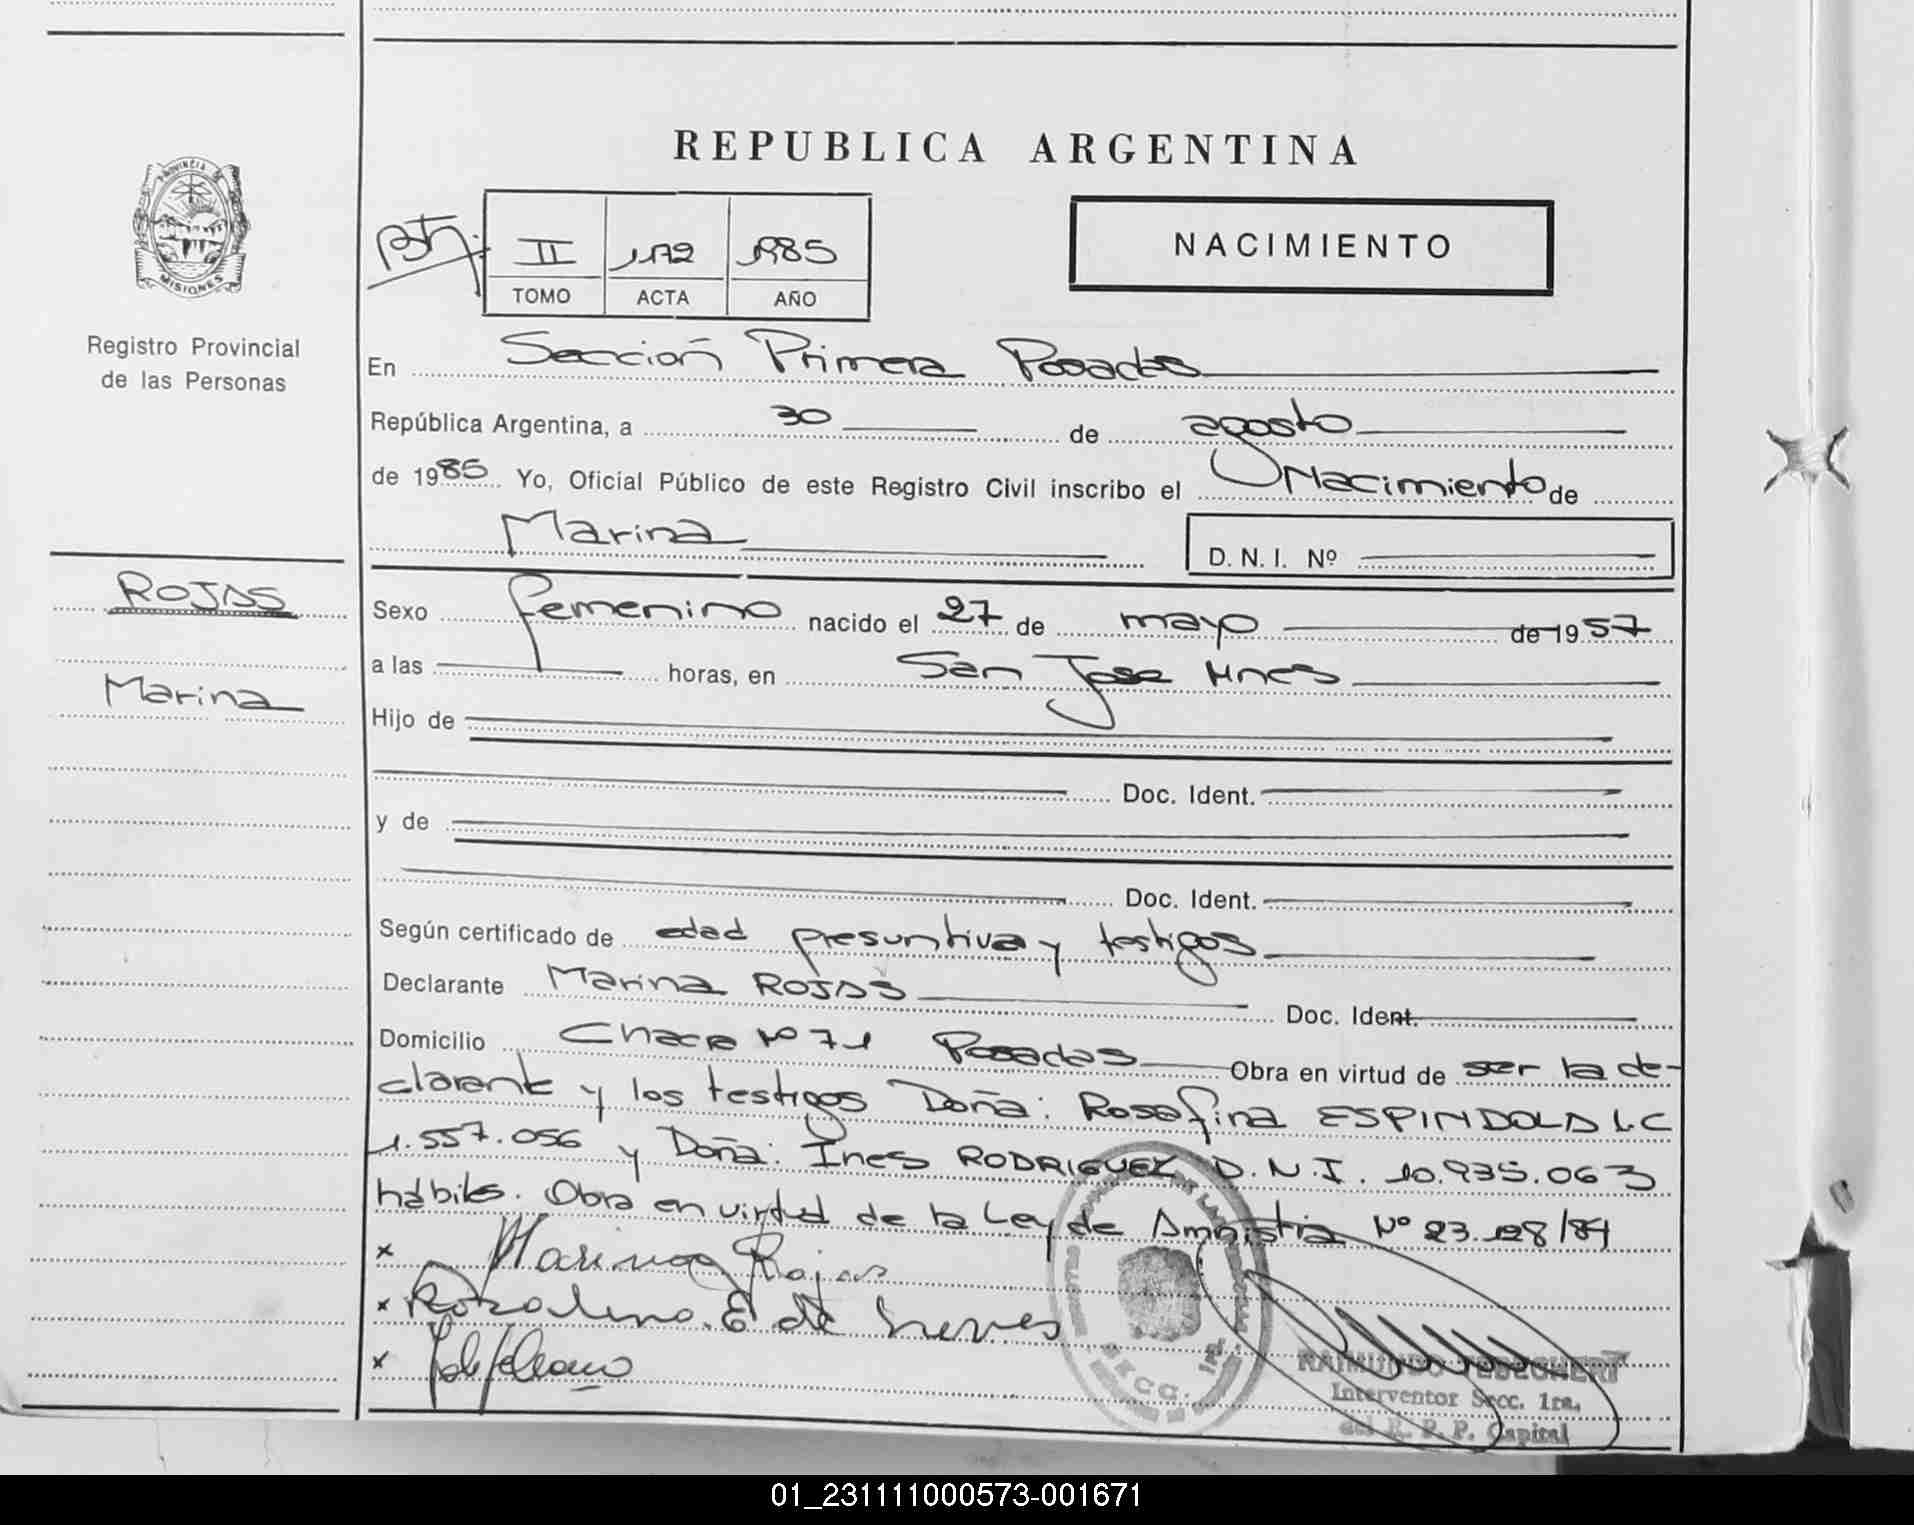 REPUBLICA ARGENTINA
PROVINCIA DE
MISIONES
Registro Provincial
de las Personas
II 172 1985
TOMO ACTA AÑO
NACIMIENTO
En Sección Primera Posadas
República Argentina, a 30 de agosto
de 1985 Yo, Oficial Público de este Registro Civil inscribo el Nacimiento de
Marina D. N. I. Nº
ROJAS
Marina
Sexo femenino nacido el 27 de mayo de 1957
a las horas, en San Jose Mnes
Hijo de
Doc. Ident.
y de
Doc. Ident.
Según certificado de edad presuntiva y testigos
Declarante Marina ROJAS Doc. Ident.
Domicilio Chacra Nº 71 Posadas Obra en virtud de ser la de-
clarante y los testigos Doña: Rosafina ESPINDOLA L.C
1.557.056 y Doña: Ines RODRIGUEZ D.N.I. 10.935.063
hábiles. Obra en virtud de la Ley de Amnistia Nº 23.128/84
x Marina Rojas
x E de
x
SECC. 1ra.
RAIMUNDO TEDESCHERI
Interventor Secc. 1ra.
del R. P. P. Capital
01_231111000573-001671